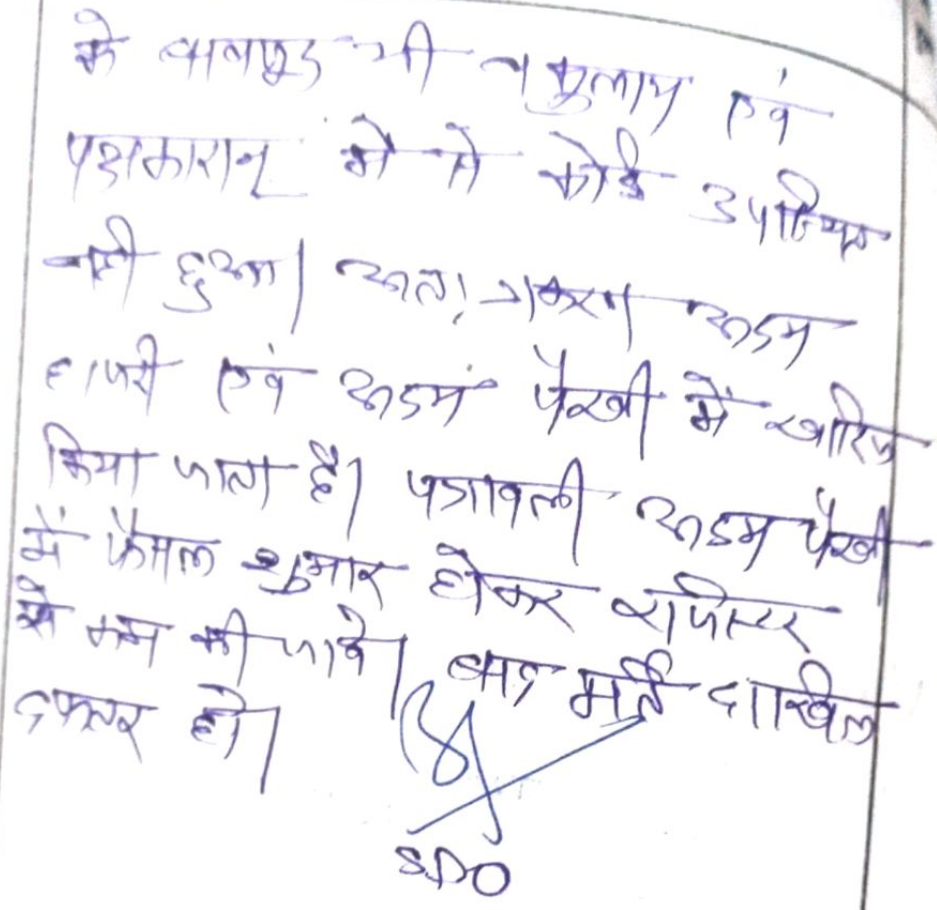 के बावजूद भी वकुलाय एवं
पक्षकारान् मे से कोई उपस्थित
नही हुआ। अतः प्रकरण अदम
हाजरी एवं अदम पैरवी में खारिज
किया जाता है। पत्रावली अदम पैरवी
में फैसल शुमार होकर रजिस्टर
से कम की जावे। बाद मर्त दाखिल
दफ्तर हो।
SDO